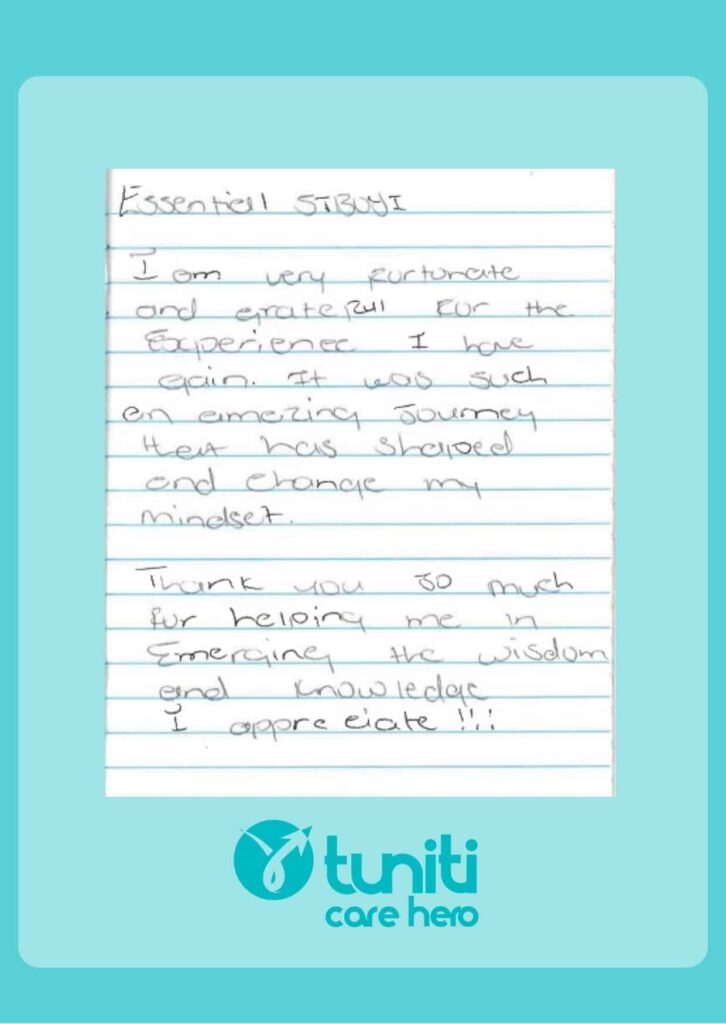 Essential SIBUYI
I am very fortunate
and grateful for the
Experience I have
gain. It was such
an amazing Journey
that has shaped
and change my
mindset.
Thank you so much
for helping me in
Emerging the wisdom
and knowledge
I appreciate !!!!
tuniti
care hero